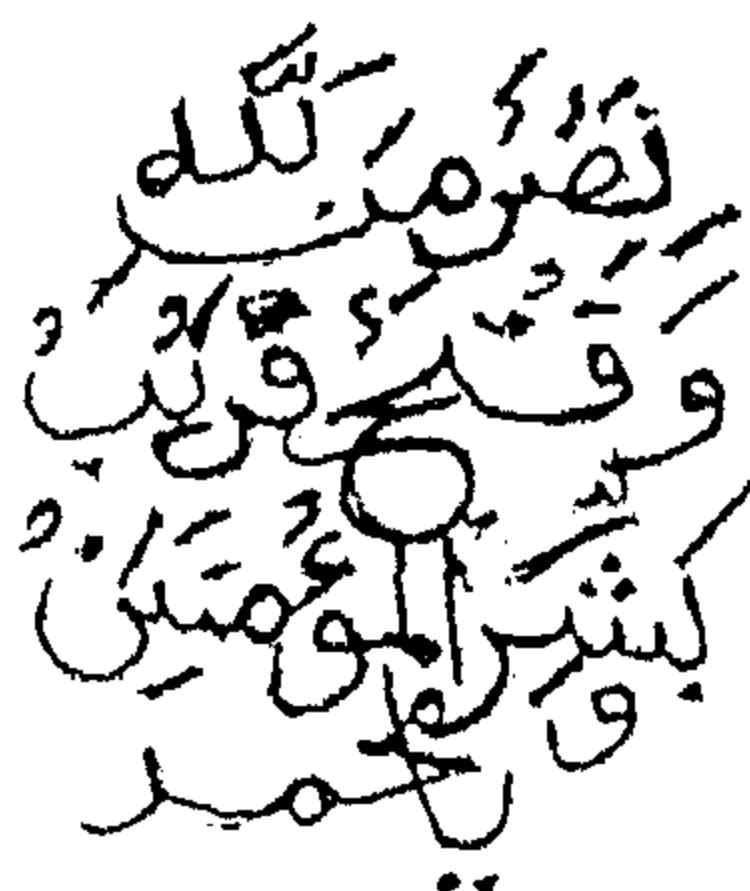 نصر من الله
و فتح قريب
و بشر المؤمنين
يا محمد